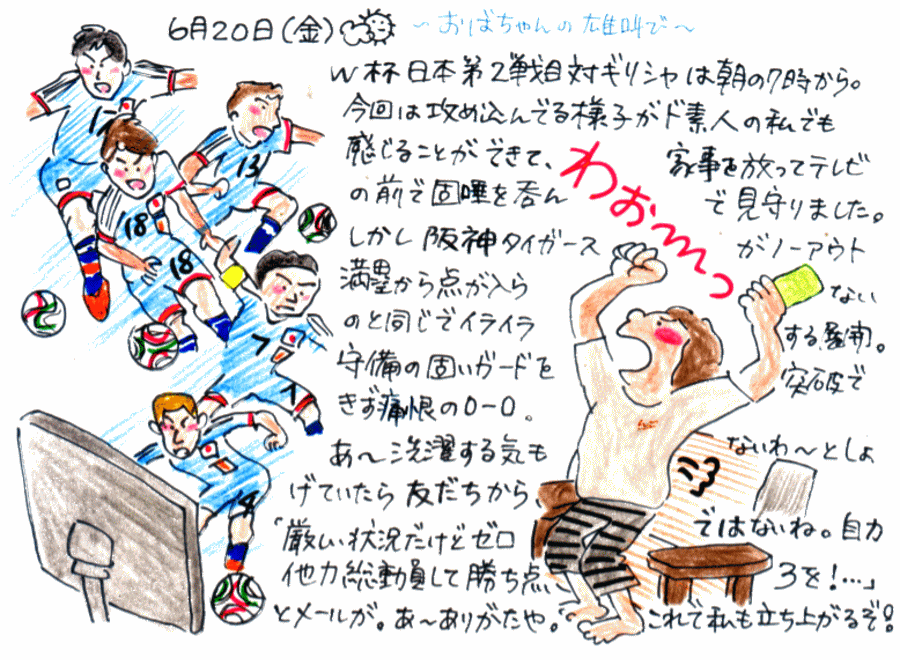 6月20日(金) ~おばちゃんの雄叫び~
W杯日本第2戦目対ギリシャは朝の7時から。
今回は攻め込んでる様子がド素人の私でも
感じることができて、家事を放ってテレビ
の前で固唾を呑んで見守りました。
しかし阪神タイガースがノーアウト
満塁から点が入らない
のと同じでイライラする展開。
守備の固いガードを突破で
きず痛恨の0-0。
あ~洗濯する気もないわ~としょ
げていたら友だちから、
「厳しい状況だけどゼロではないね。自力
他力総動員して勝ち点3を!…」
とメールが。あ~ありがたや。これで私も立ち上がるぞ!
わお~っ
13
18
18
7
14